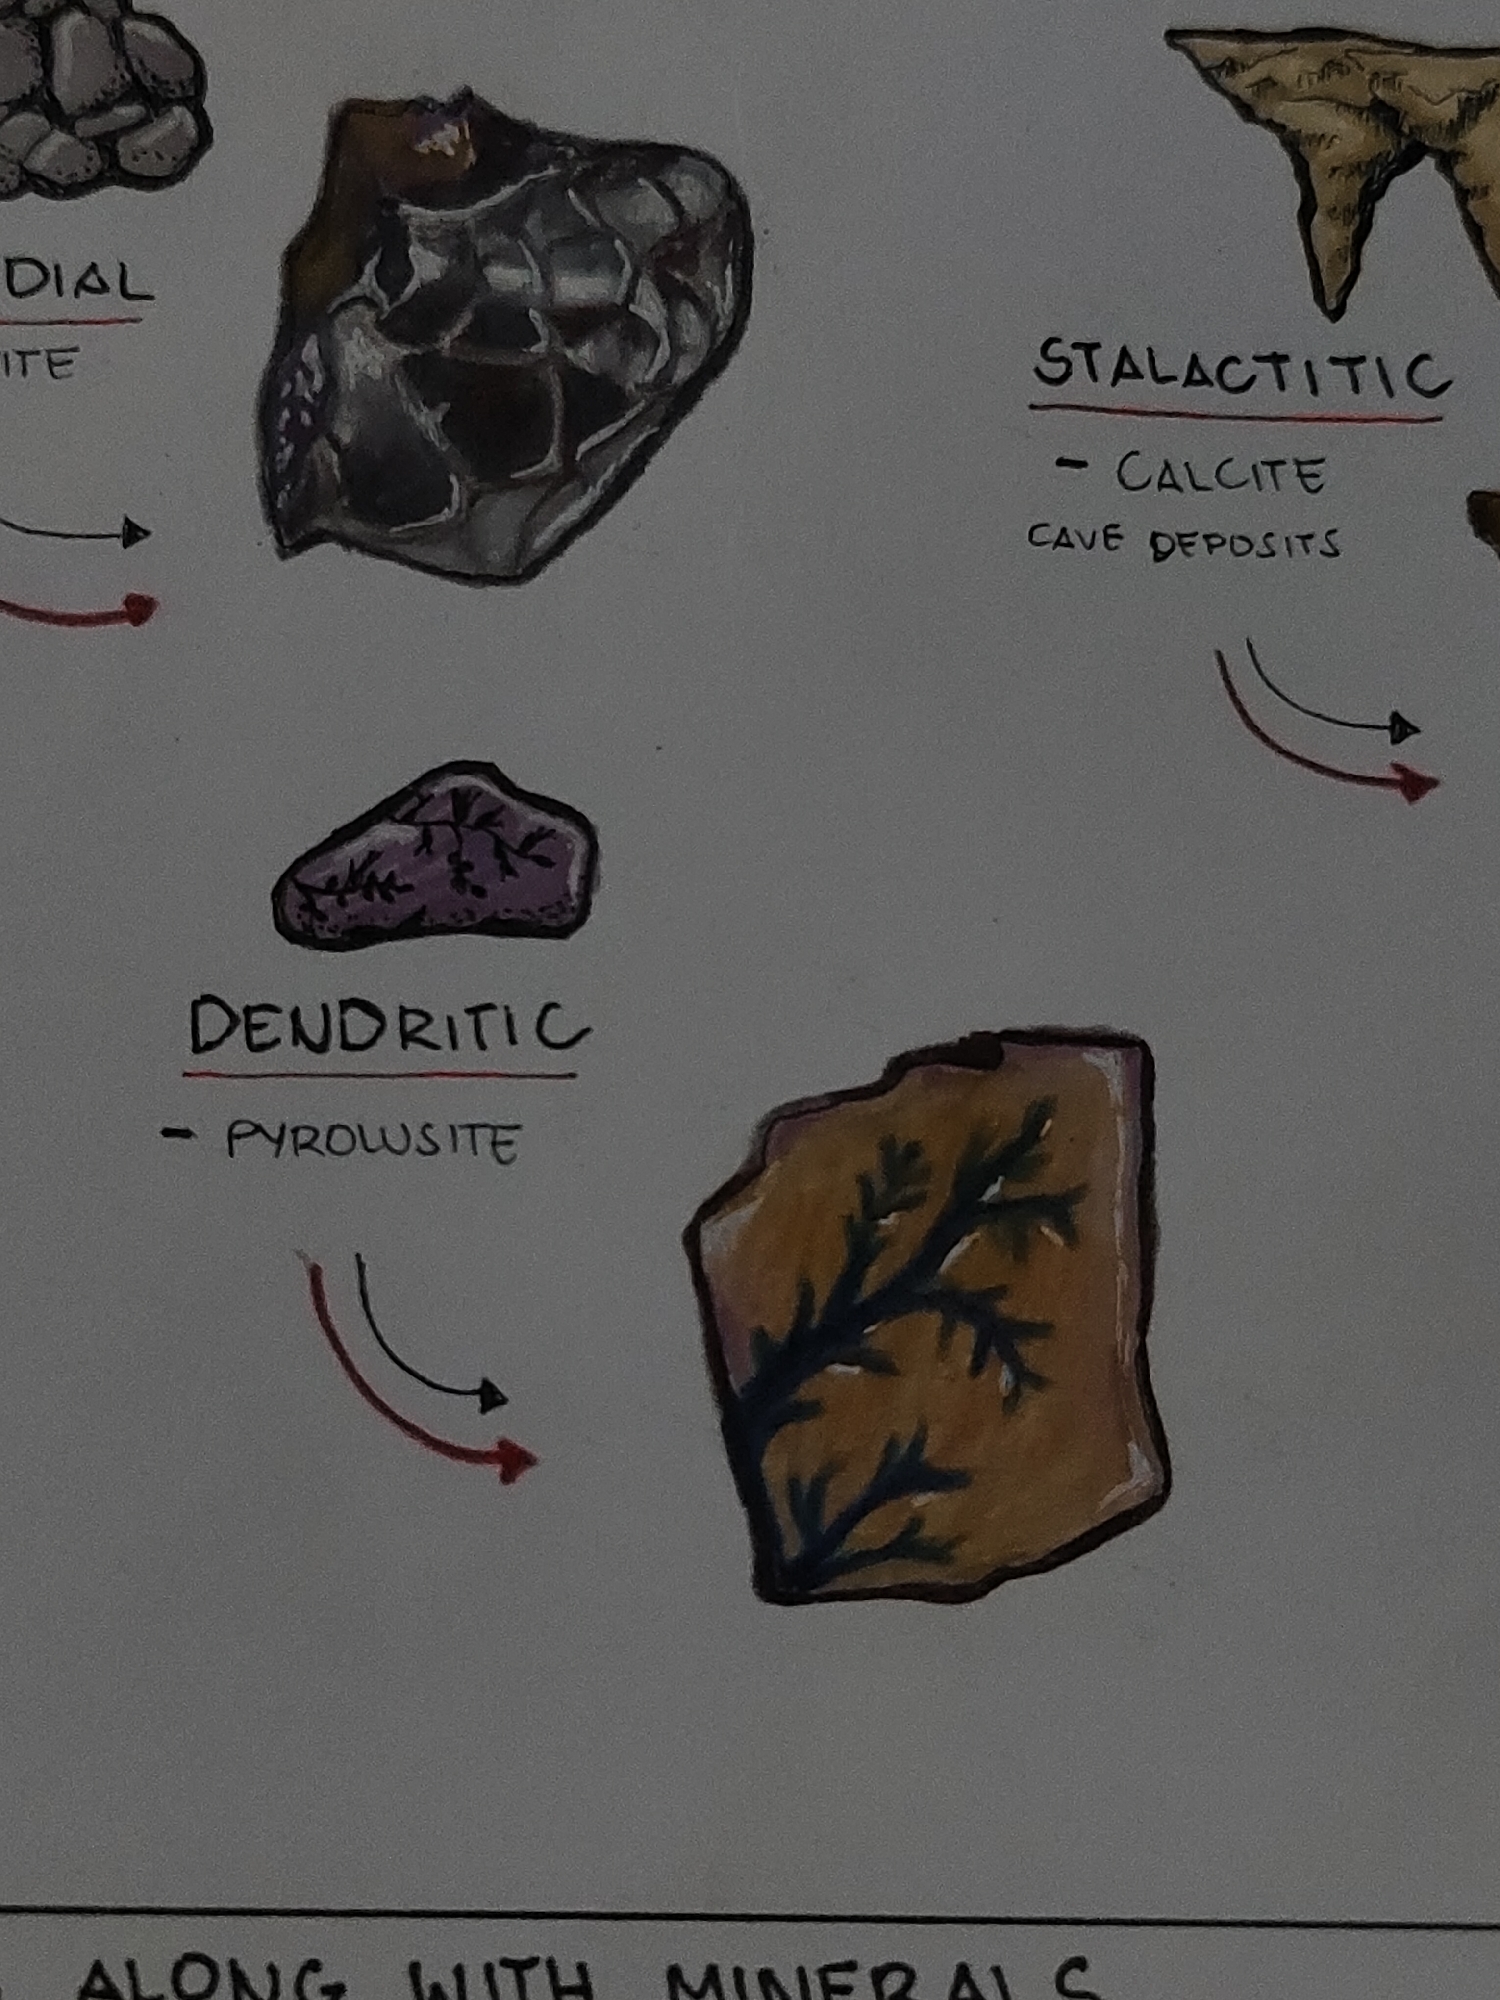 DIAL
ITE
STALACTITIC
- CALCITE
CAVE DEPOSITS
DENDRITIC
- PYROLUSITE
ALONG WITH MINERALS